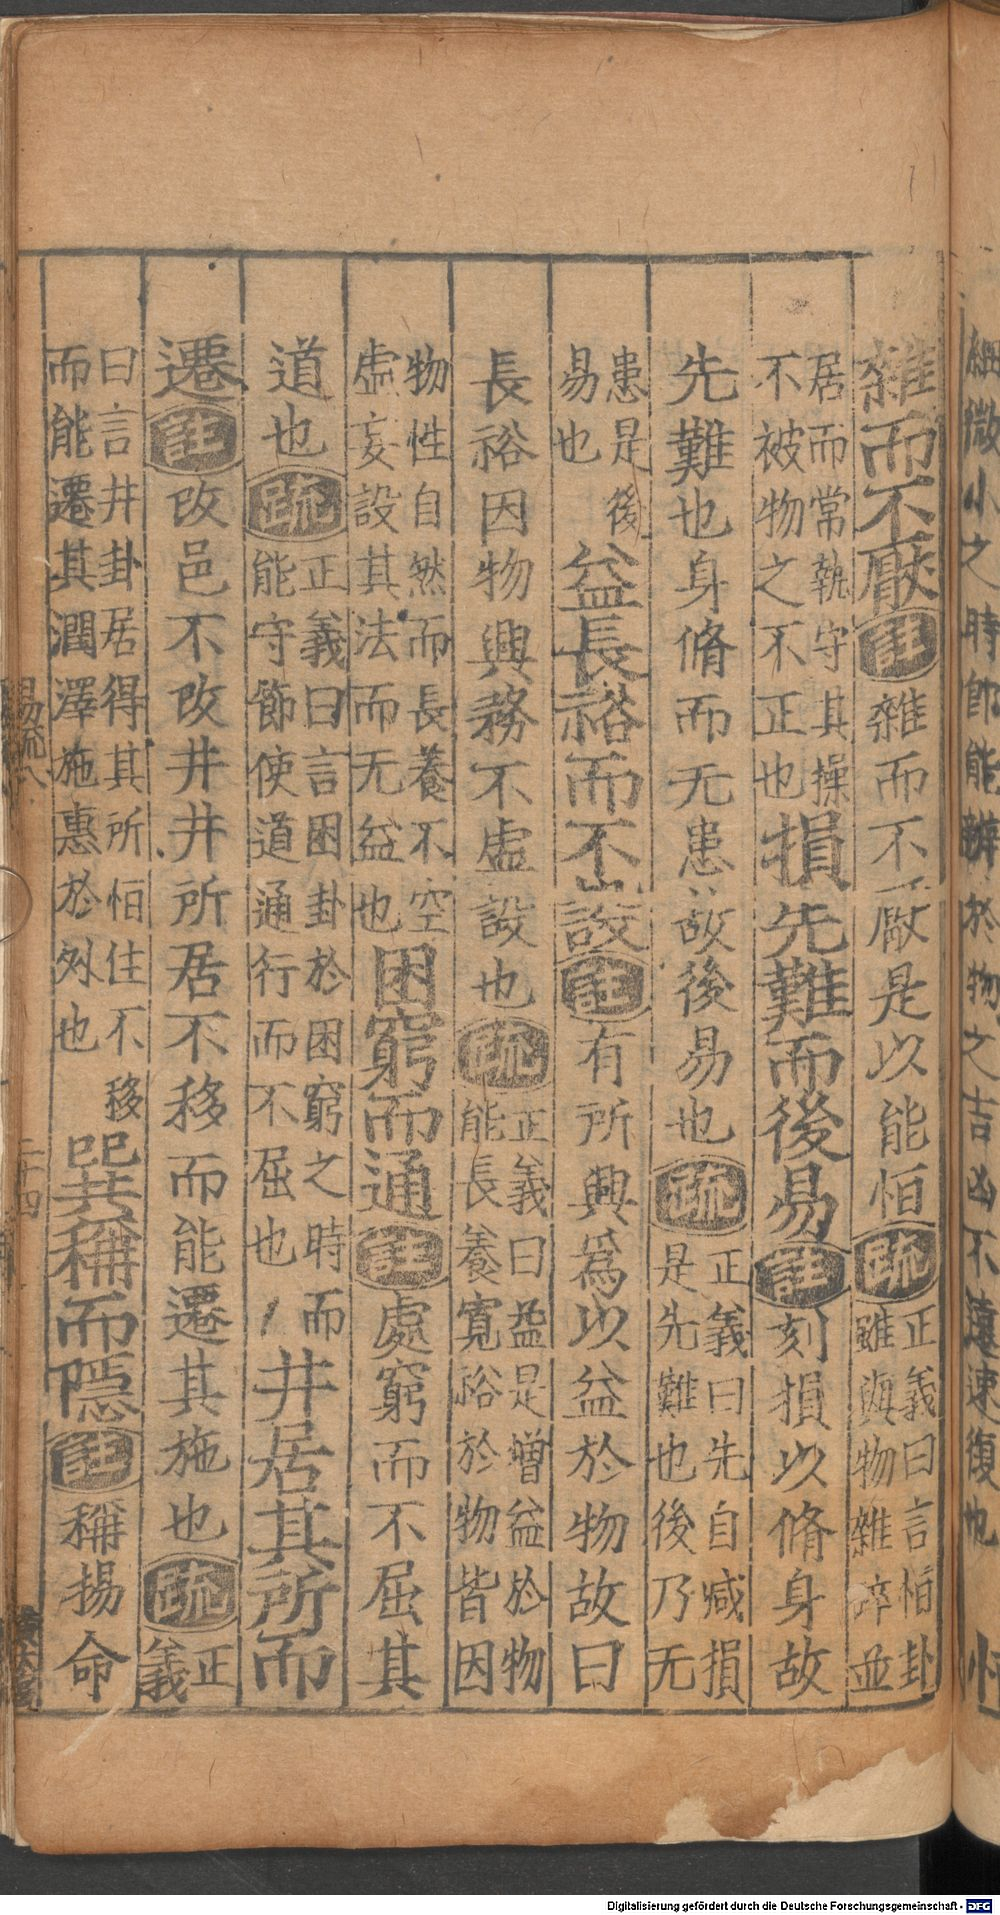 細微小之時即能辨於物之吉凶不遠速復也
雜而不厭註雜而不厭是以能恒疏正義曰言恒卦雖與物雜碎並
居而常執守其操不被物之不正也損先難而後易註刻損以脩身故
先難也身脩而无患故後易也疏正義曰先自減損是先難也後乃无
患是後易也益長裕而不設註有所興為以益於物故曰
長裕因物興務不虛設也疏正義曰益是增益於物能長養寬裕於物皆因
物性自然而長養不空虛妄設其法而无益也困窮而通註處窮而不屈其
道也疏正義曰言困卦於困窮之時而能守節使道通行而不屈也井居其所而
遷註改邑不改井井所居不移而能遷其施也疏正義
曰言井卦居得其所恒住不移而能遷其潤澤施惠於外也巽稱而隱註稱揚命
易疏八
二十四
Digitalisierung gefördert durch die Deutsche Forschungsgemeinschaft - DFG